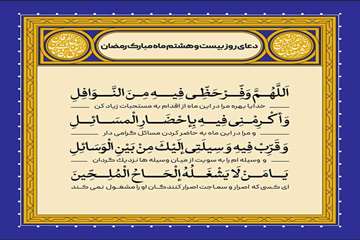 دعای روز بیست و هشتم ماه مبارک رمضان
اَللّهُمَّ وَفِّرْ حَظّی فیهِ مِنَ النَّوافِلِ
خدایا بهره مرا در این ماه از اقدام به مستحبات زیاد کن
وَ أَکْرِمْنی فیهِ بِإِحْضارِ الْمَسائِلِ
و مرا در این ماه به حاضر کردن مسائل گرامی دار
وَ قَرِّبْ فیهِ وَسیلَتی إِلَیْکَ مِنْ بَیْنِ الْوَسائِلِ
و وسیله ام را به سویت از میان وسیله ها نزدیک گردان
یا مَنْ لا یَشْغَلُهُ إِلْحاحُ الْمُلِحّینَ
ای کسی که اصرار و سماجت اصرار کنندگان او را مشغول نمی کند